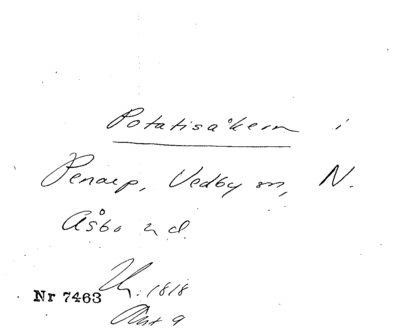 Potatisåkern i
Penarp, Vedby sn, N.
Åsbo hd.
Nr 7463 Th. 1818
Akt 9